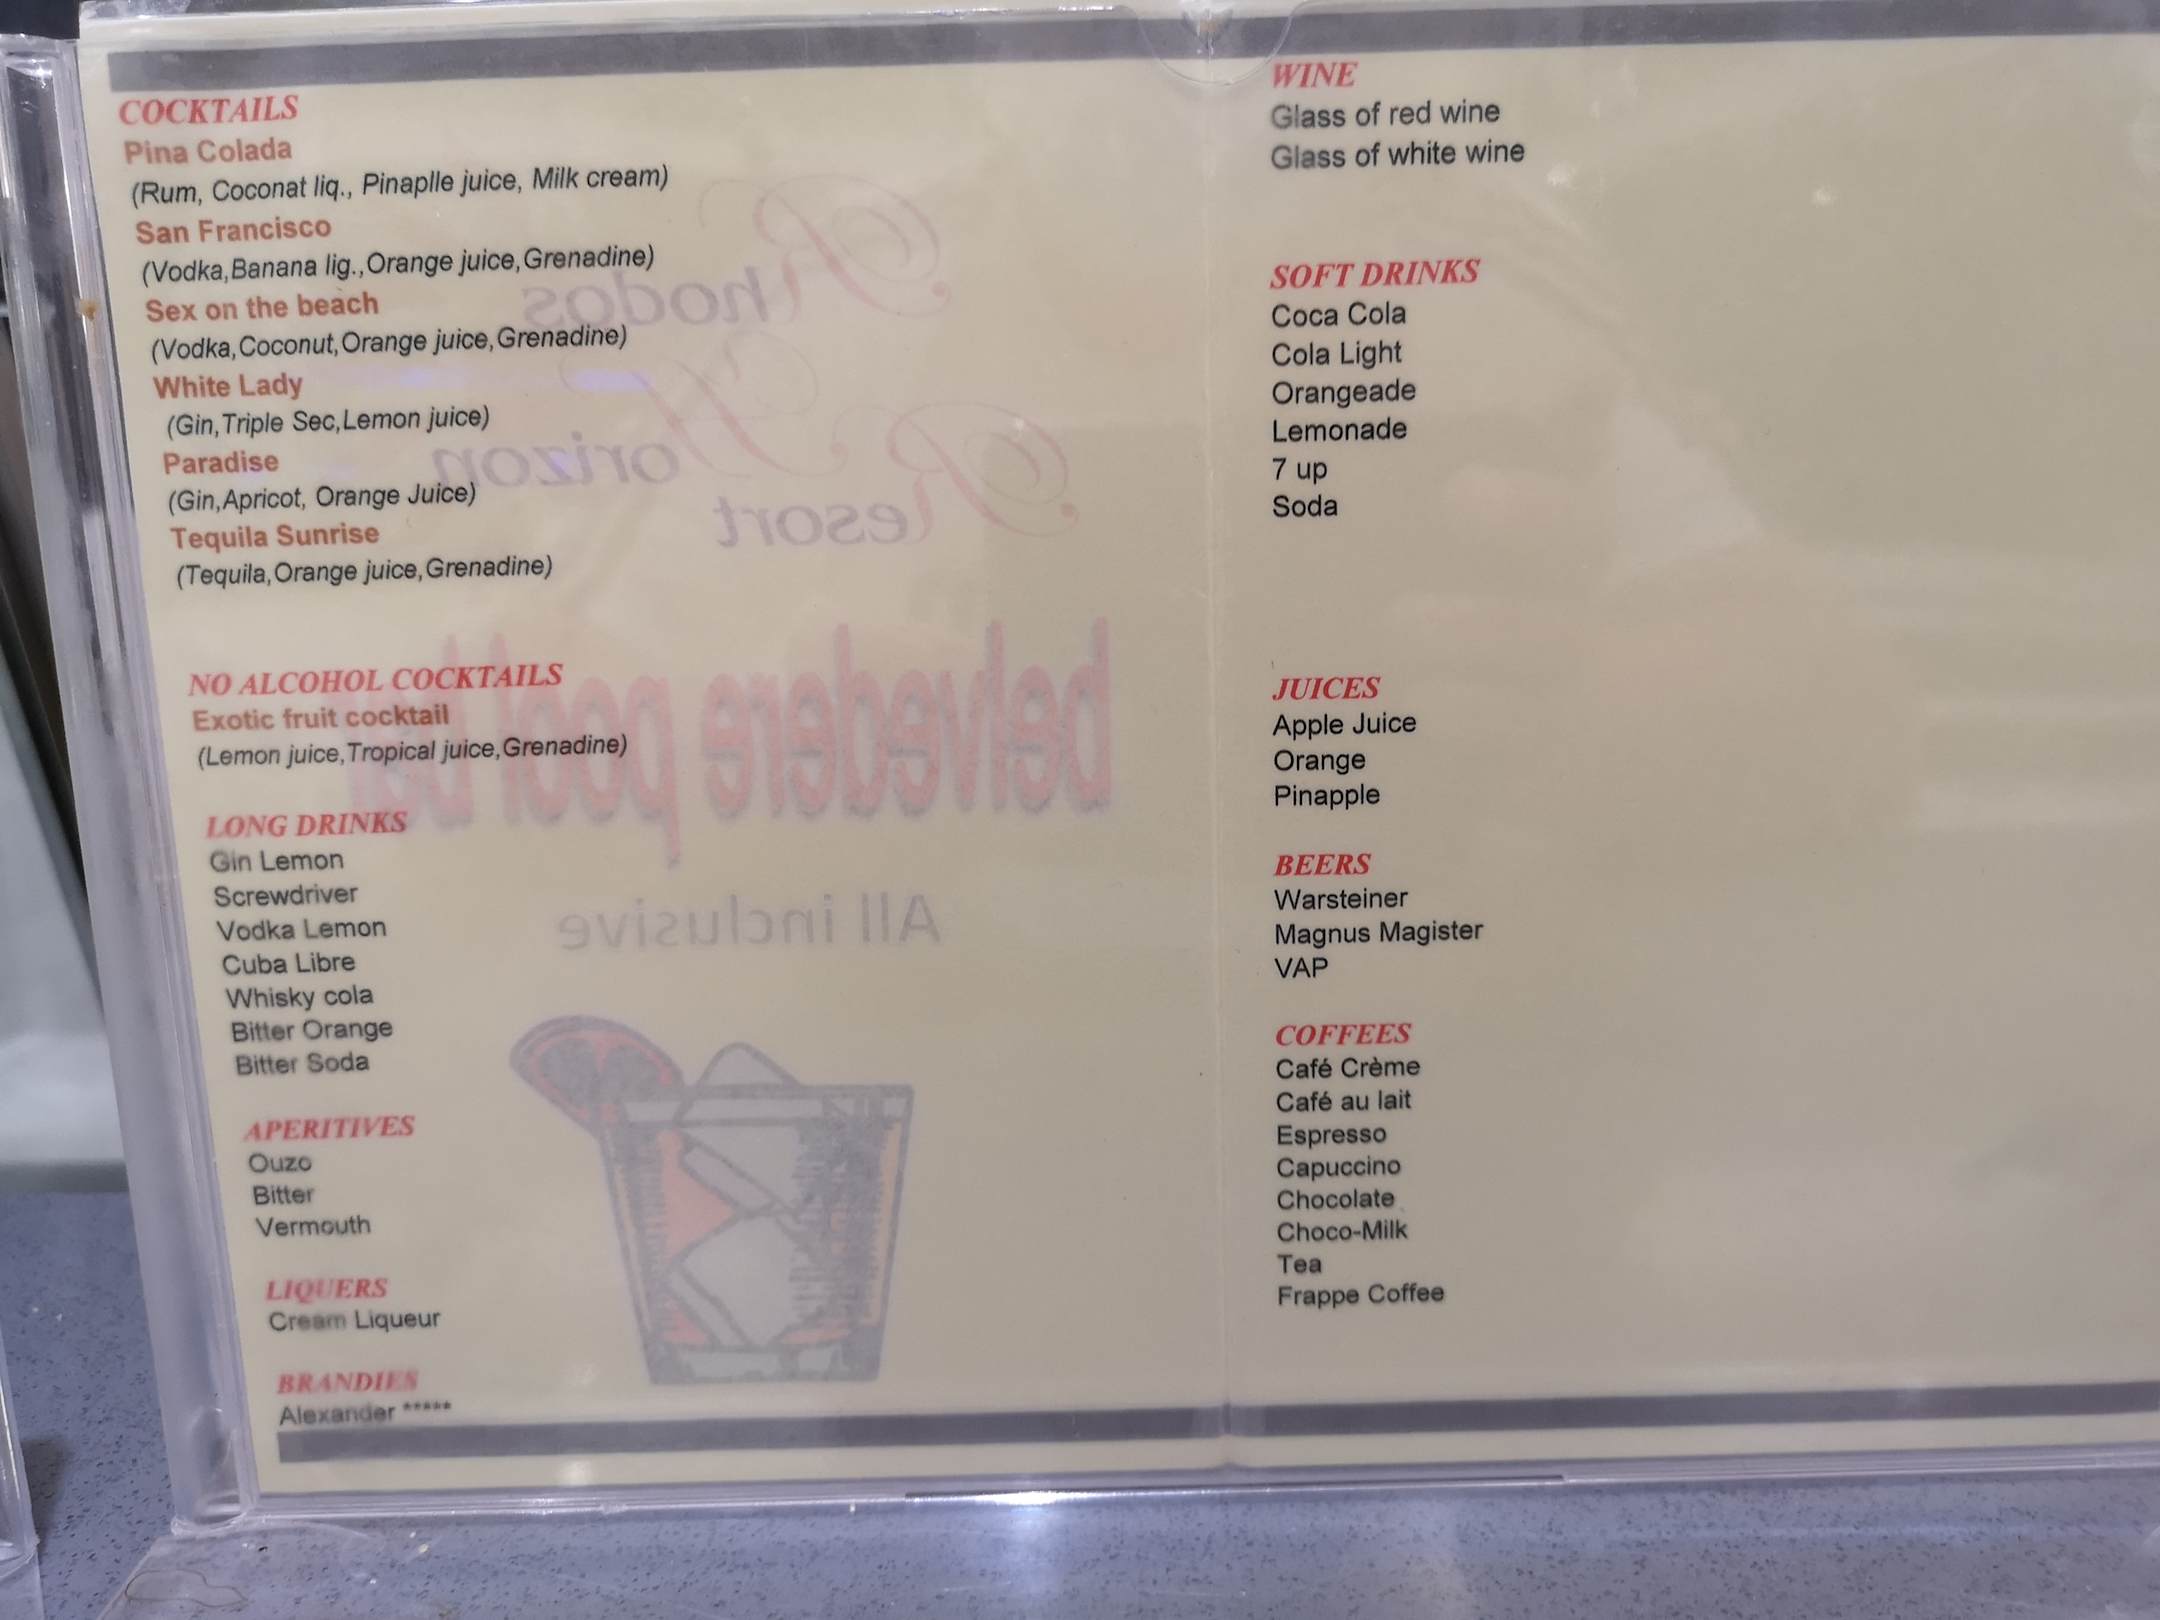 COCKTAILS
Pina Colada
(Rum, Coconat liq., Pinaplle juice, Milk cream)
San Francisco
(Vodka,Banana lig.,Orange juice,Grenadine)
Sex on the beach
(Vodka,Coconut,Orange juice,Grenadine)
White Lady
(Gin,Triple Sec,Lemon juice)
Paradise
(Gin,Apricot, Orange Juice)
Tequila Sunrise
(Tequila,Orange juice,Grenadine)
NO ALCOHOL COCKTAILS
Exotic fruit cocktail
(Lemon juice,Tropical juice,Grenadine)
LONG DRINKS
Gin Lemon
Screwdriver
Vodka Lemon
Cuba Libre
Whisky cola
Bitter Orange
Bitter Soda
APERITIVES
Ouzo
Bitter
Vermouth
LIQUERS
Cream Liqueur
BRANDIES
Alexander *****
Rhodos
Horizon
Resort
belvedere pool bar
All inclusive
WINE
Glass of red wine
Glass of white wine
SOFT DRINKS
Coca Cola
Cola Light
Orangeade
Lemonade
7 up
Soda
JUICES
Apple Juice
Orange
Pinapple
BEERS
Warsteiner
Magnus Magister
VAP
COFFEES
Café Crème
Café au lait
Espresso
Capuccino
Chocolate
Choco-Milk
Tea
Frappe Coffee